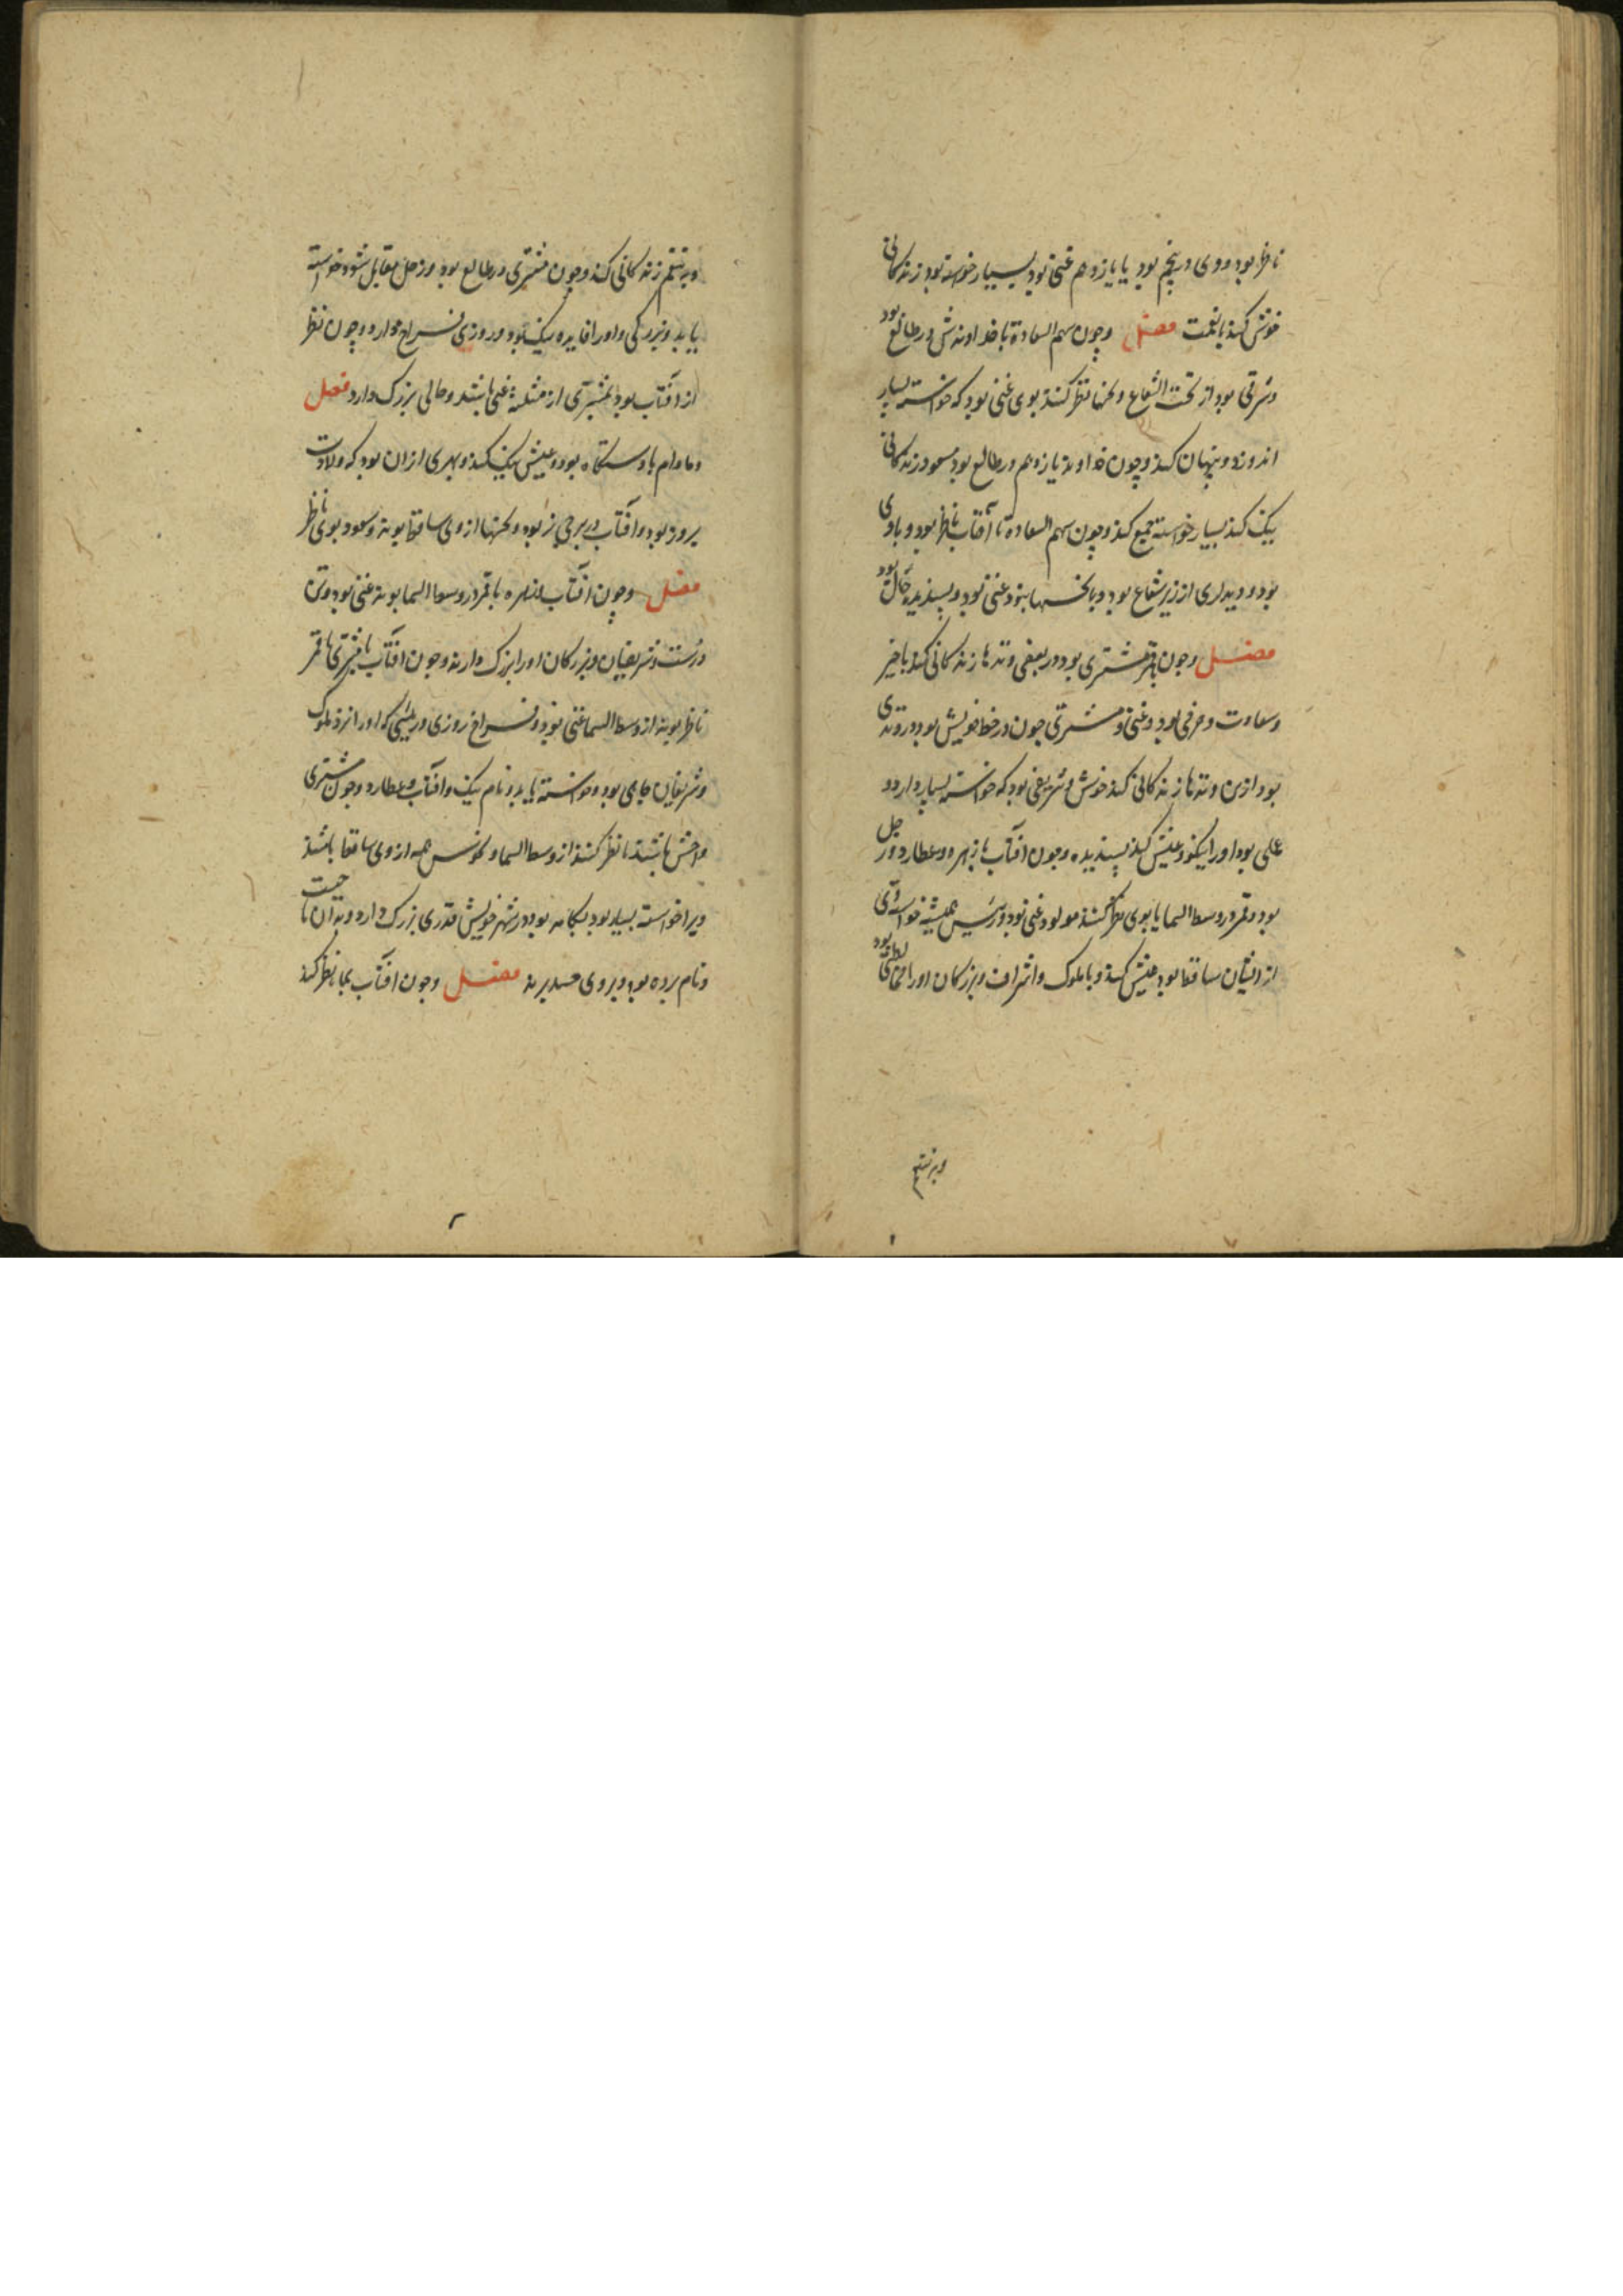 ناظر بود و وی در پنجم بود یا یازدهم غنی بود بسیار خواسته بود زندکانی
خوش کند بانعمت فصل وچون سهم السعادة با خداوندش در طالع بود
وشرقی بود از تحت الشعاع ونحسها نظر کنند بوی غنی بود که خواسته بسیار
اندوزد و پنهان کند وچون خداوند یازدهم در طالع بود مسعود زندکانی
نیک کند بسیار خواسته جمع کند وچون سهم السعادة تا آفتاب ناظر بود و با وی
بود و وی از زیر شعاع بود و با نحسها نبود غنی بود و پسندیده حال بود
فصل وچون با قمر مشتری بود در بعضی وتدها زندکانی کند با خیر
وسعادت و بود وغنی و مشتری چون در خط خویش بود در وتدی
بود ازین وتدها زندکانی کند خوش وشریفی بود که خواسته بسیار دارد و
علی بود اورا نیکو وعیش کند پسندیده وچون افتاب با زهره وعطارد وزحل
بود وقمر در وسط السما یا بوی نظر کنند مولود غنی بود ورئیس همیشه خواسته وی
از ایشان ساقط بود عیش کند و با ملوک واشراف وبزرکان اورا بود
وبرستم
وبه ستم زندکانی کند وچون مشتری در طالع بود وزحل مقابل شود خواسته
یابد وبزرکی واورا فایده نیک بود و روزی فراخ دارد وچون نظر
از آفتاب بود بمشتری از مثلثه غنی باشد وحالی بزرک دارد فصل
ومادام با دستکاه بود وعیش نیک کند وبهری ازان بود که ولادت
بروز بود وآفتاب در برجی نر بود ونحسها از وی ساقط بوند وسعود بوی ناظر
فصل وچون افتاب وزهره با قمر در وسط السما بوند غنی بود وتن
درست وشریفان وبزرکان اورا بزرک دارند وچون افتاب با مشتری یا قمر
ناظر بوند از وسط السما غنی بود وفراخ روزی و رئیسی که اورا نزد ملوک
وشریفان جاهی بود وخواسته یابد ونام نیک وآفتاب وعطارد وچون مشتری
باشند یا نظر کنند از وسط السما ونحوس همه از وی ساقط باشند
ویرا خواسته بسیار بود بیکانه بود در شهر خویش قدری بزرک دارد
ونام برده بود وبر وی حسد برند فصل وچون افتاب بماه نظر کند
۲